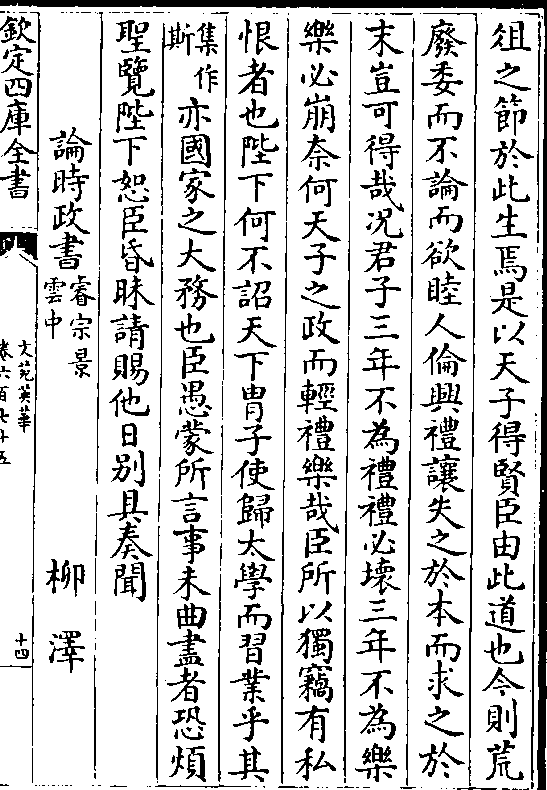 俎之節於此生焉是以天子得賢臣由此道也今則荒
廢委而不論而欲睦人倫興禮讓失之於本而求之於
末豈可得哉况君子三年不為禮禮必壊三年不為樂
樂必崩奈何天子之政而輕禮樂哉臣所以獨竊有私
恨者也陛下何不詔天下胄子使歸太學而習業乎其
集作
斯
亦國家之大務也臣愚蒙所言事未曲盡者恐煩
聖覽陛下恕臣昏昧請賜他日别具奏聞
論時政書
睿宗景
雲中
柳澤
欽定四庫全書
文苑英華
卷六百七十五
十四